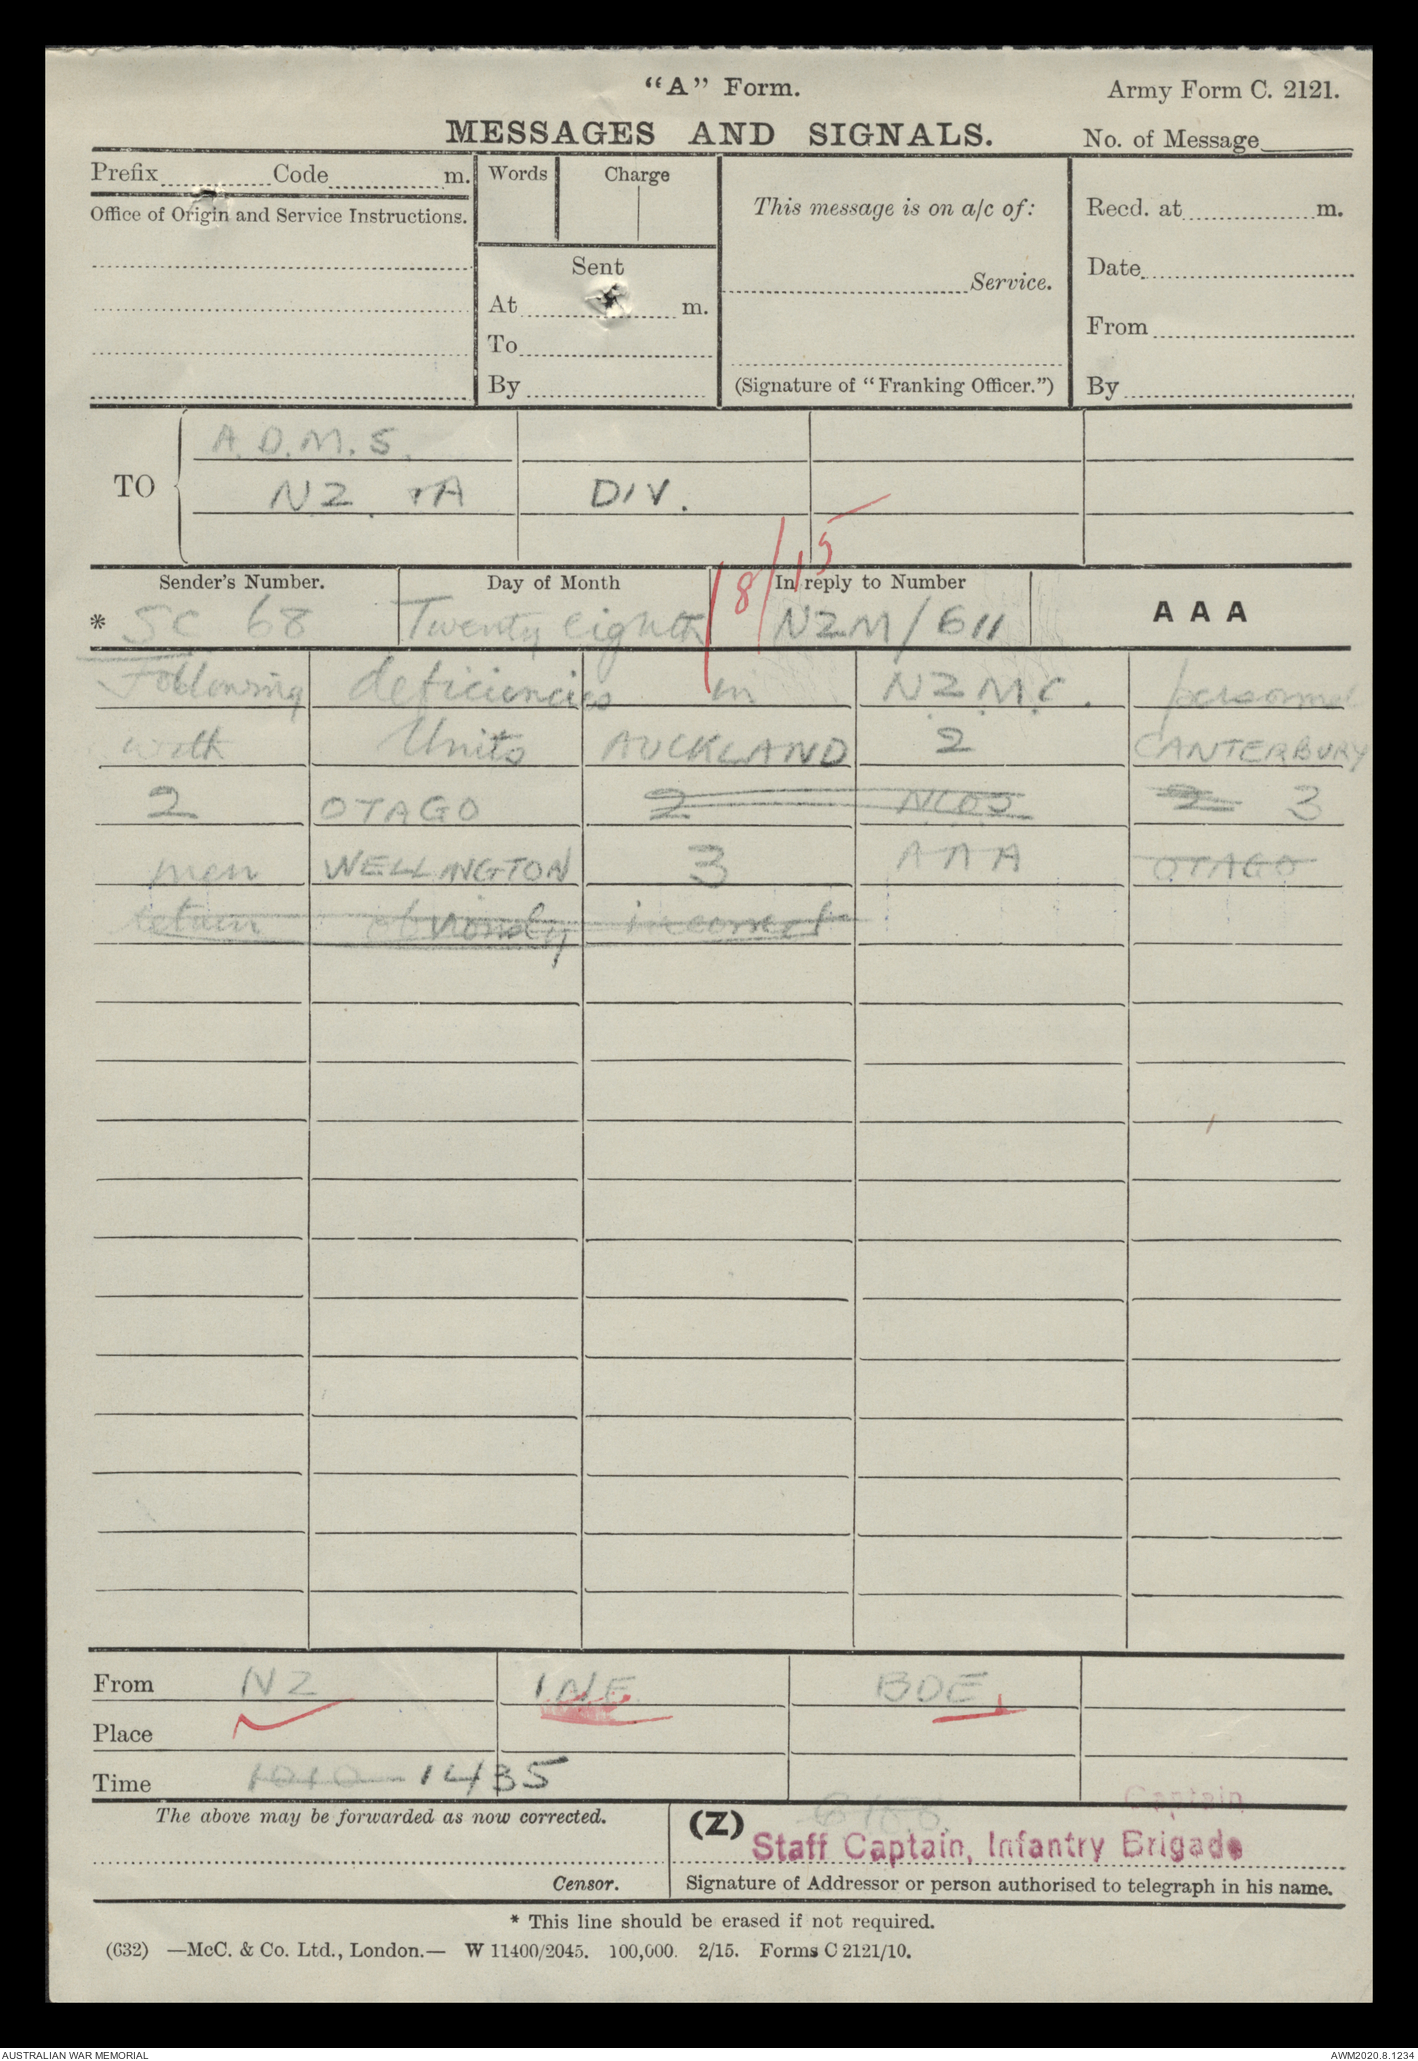 "A" Form.
Army Form C. 2121.
MESSAGES AND SIGNALS.
No. of Message
Prefix Code m.
Words Charge
This message is on a/c of:
Recd. at m.
Office of Origin and Service Instructions.
Sent
Service.
Date
At m.
From
To
By
(Signature of "Franking Officer.")
By
A.D.M.S.
TO
NZ + A DIV.
/8/15
Sender's Number. Day of Month In reply to Number
* SC 68 Twenty eighth NZM/611 A A A
Following deficiencies in NZMC. personnel
with Units AUCKLAND 2 CANTERBURY
2 OTAGO 2 NCOS 2 3
men WELLINGTON 3 AAA OTAGO
return obviously incorrect
From NZ INF BDE.
Place
Time 1010 1435
The above may be forwarded as now corrected.
(Z)
Captain
Staff Captain, Infantry Brigade
Censor.
Signature of Addressor or person authorised to telegraph in his name.
* This line should be erased if not required.
(632) —McC. & Co. Ltd., London.— W 11400/2045. 100,000. 2/15. Forms C 2121/10.
AUSTRALIAN WAR MEMORIAL
AWM2020.8.1234